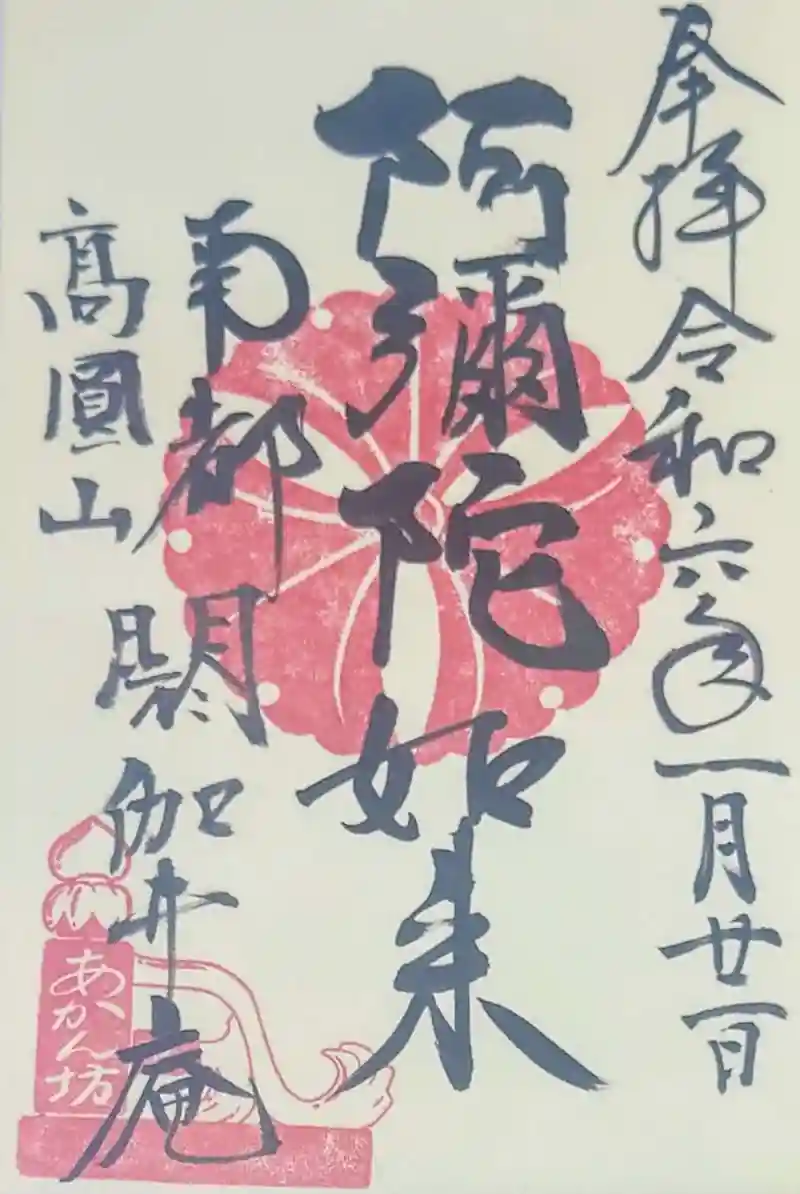 奉拝 令和六年一月廿一日
阿彌陀如来
南都 閼伽井庵
髙圓山
あかん坊